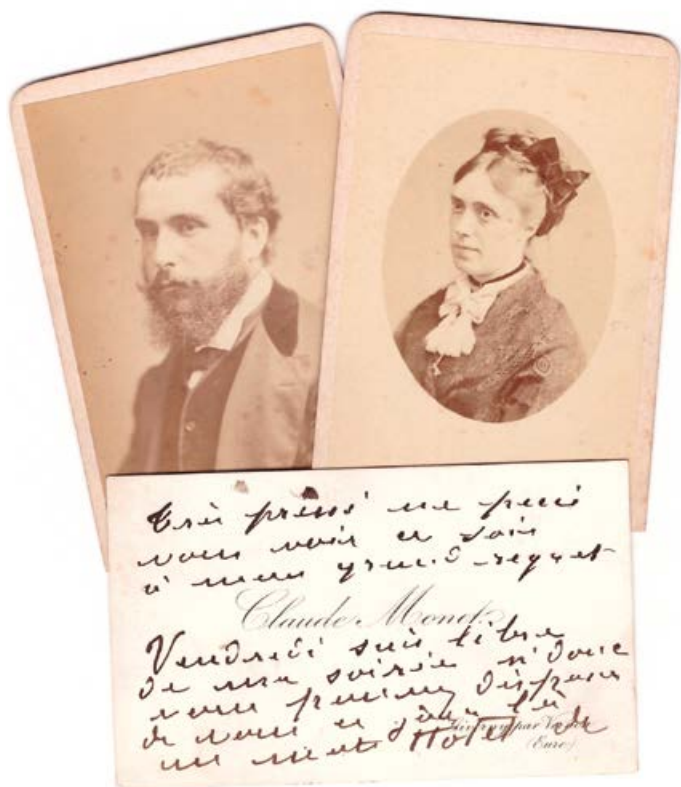 très pressé ne puis
vous voir ce soir
à mon grand regret
Claude Monet
Vendredi suis libre
de ma soirée si donc
vous pouviez disposer
de vous ce jour là
un mot Hotel de
Giverny par Vernon
(Eure)